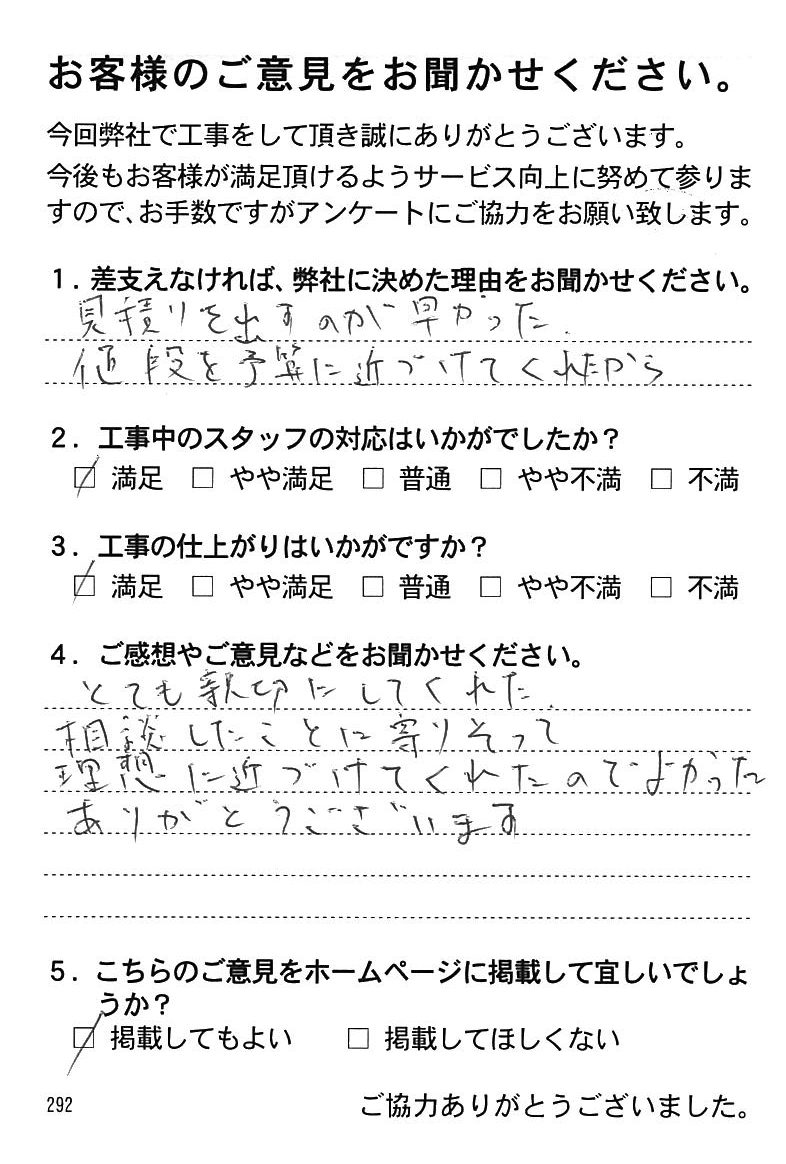 お客様のご意見をお聞かせください。
今回弊社で工事をして頂き誠にありがとうございます。
今後もお客様が満足頂けるようサービス向上に努めて参りま
すので、お手数ですがアンケートにご協力をお願い致します。
1．差支えなければ、弊社に決めた理由をお聞かせください。
見積りを出すのが早かった.
値段を予算に近づけてくれたから
2．工事中のスタッフの対応はいかがでしたか？
☑ 満足 □ やや満足 □ 普通 □ やや不満 □ 不満
3．工事の仕上がりはいかがですか？
☑ 満足 □ やや満足 □ 普通 □ やや不満 □ 不満
4．ご感想やご意見などをお聞かせください。
とても親切にしてくれた.
相談したことに寄りそって
理想に近づけてくれたのでよかった
ありがとうございます
5．こちらのご意見をホームページに掲載して宜しいでしょ
うか？
☑ 掲載してもよい □ 掲載してほしくない
292 ご協力ありがとうございました。